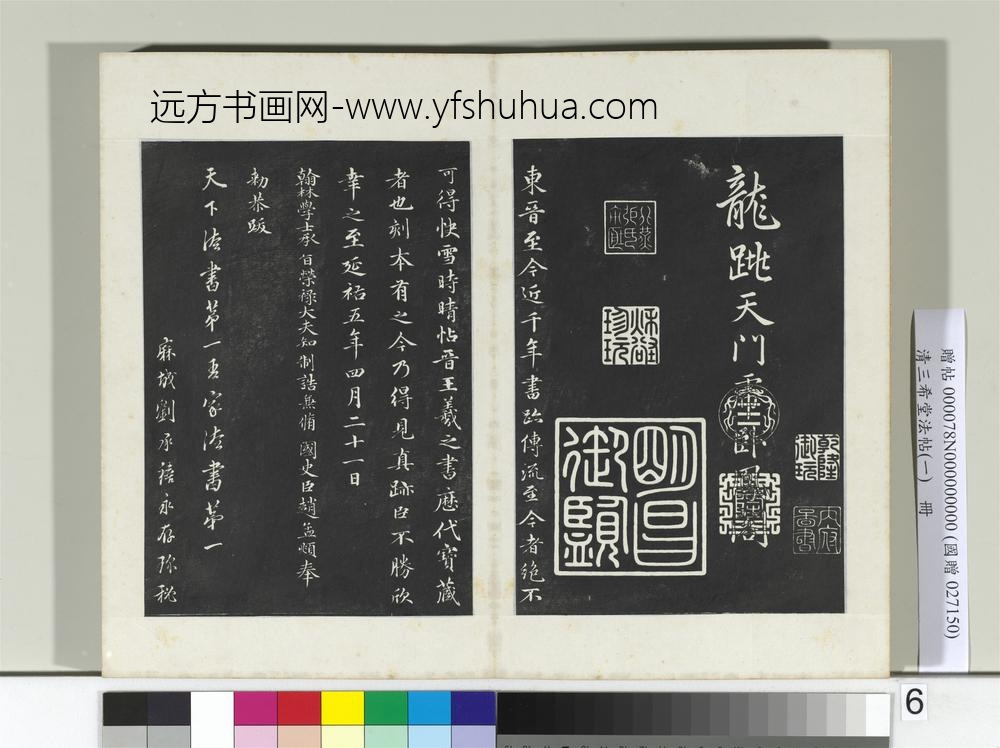 远方书画网-www.yfshuhua.com
龍跳天門虎卧鳳閣
明昌御覽
乾隆御玩
内府圖書
東晉至今近千年書跡傳流至今者絶不
可得快雪時晴帖晉王羲之書歷代寶藏
者也刻本有之今乃得見真跡臣不勝欣
幸之至延祐五年四月二十一日
翰林學士承旨榮祿大夫知制誥兼脩國史臣趙孟頫奉
勅恭跋
天下法書第一吾家法書第一
麻城劉承禧永存珍秘
贈帖 000078N000000000 (國贈 027150)
清三希堂法帖(一) 冊
6